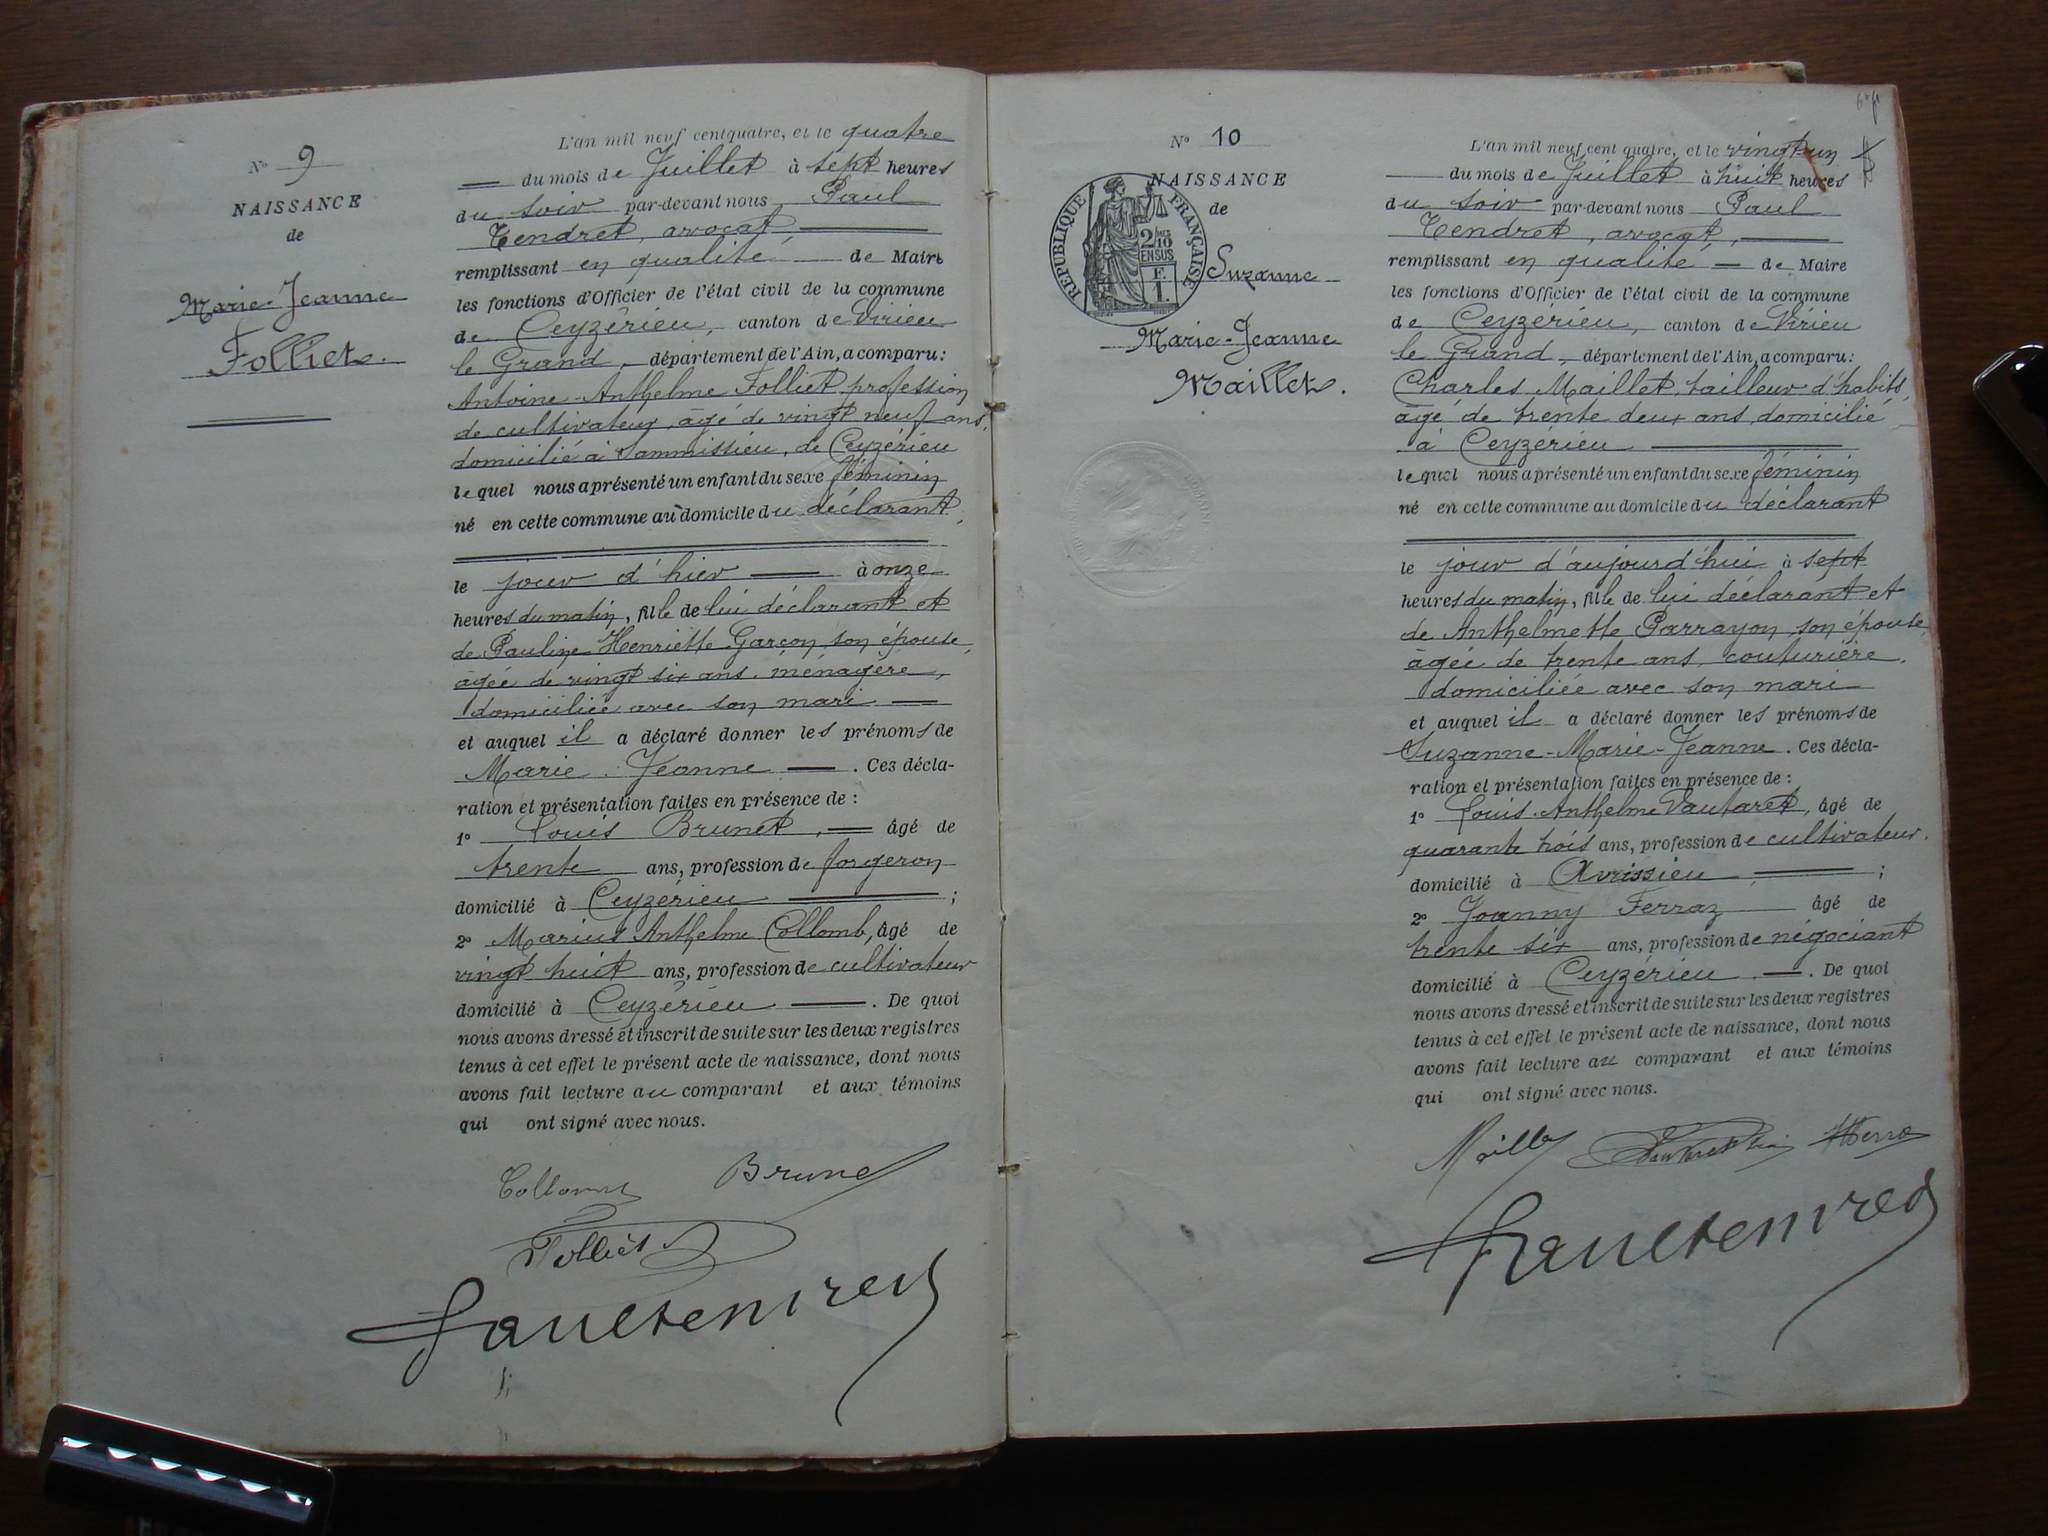 N° 9
NAISSANCE
de
Marie-Jeanne
Folliet.
L'an mil neuf cent quatre, et le quatre
du mois de Juillet à sept heures
du soir par-devant nous Paul
Tendret, avocat,
remplissant en qualité de Maire
les fonctions d'Officier de l'état civil de la commune
de Ceyzérieu, canton de Virieu
le Grand, département de l'Ain, a comparu:
Antoine-Anthelme Folliet, profession
de cultivateur, âgé de vingt neuf ans,
domicilié à Sammissieu, de Ceyzérieu
lequel nous a présenté un enfant du sexe féminin
né en cette commune au domicile du déclarant,
le jour d'hier à onze
heures du matin, fille de lui déclarant et
de Pauline Henriette Garçon son épouse,
agée de vingt six ans, ménagère,
domiciliée avec son mari
et auquel il a déclaré donner les prénoms de
Marie Jeanne. Ces décla-
ration et présentation faites en présence de :
1° Louis Brunet, âgé de
trente ans, profession de forgeron
domicilié à Ceyzérieu ;
2° Marius Anthelme Collomb, âgé de
vingt huit ans, profession de cultivateur
domicilié à Ceyzérieu. De quoi
nous avons dressé et inscrit de suite sur les deux registres
tenus à cet effet le présent acte de naissance, dont nous
avons fait lecture au comparant et aux témoins
qui ont signé avec nous.
Collomb Brunet
Folliet
Paul Tendret
N° 10
NAISSANCE
de
REPUBLIQUE FRANÇAISE
2/10
EN SUS
F.
1.
Suzanne
Marie-Jeanne
Maillet.
L'an mil neuf cent quatre, et le vingt-un
du mois de Juillet à huit heures
du soir par-devant nous Paul
Tendret, avocat,
remplissant en qualité de Maire
les fonctions d'Officier de l'état civil de la commune
de Ceyzérieu, canton de Virieu
le Grand, département de l'Ain, a comparu:
Charles Maillet, tailleur d'habits,
âgé de trente deux ans, domicilié
à Ceyzérieu
lequel nous a présenté un enfant du sexe féminin
né en cette commune au domicile du déclarant
le jour d'aujourd'hui à sept
heures du matin, fille de lui déclarant et
de Anthelmette Parrayon, son épouse,
âgée de trente ans, couturière,
domiciliée avec son mari
et auquel il a déclaré donner les prénoms de
Suzanne-Marie-Jeanne. Ces décla-
ration et présentation faites en présence de :
1° Louis Anthelme Vautaret, âgé de
quarante trois ans, profession de cultivateur.
domicilié à Avrissieu ;
2° Joanny Ferraz âgé de
trente six ans, profession de négociant
domicilié à Ceyzérieu. De quoi
nous avons dressé et inscrit de suite sur les deux registres
tenus à cet effet le présent acte de naissance, dont nous
avons fait lecture au comparant et aux témoins
qui ont signé avec nous.
Paul Tendret